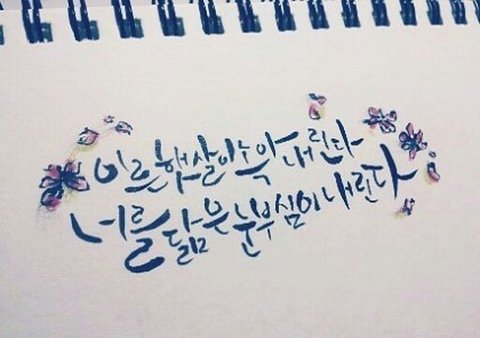 이른 햇살이 녹아 내린다
너를 닮은 눈부심이 내린다